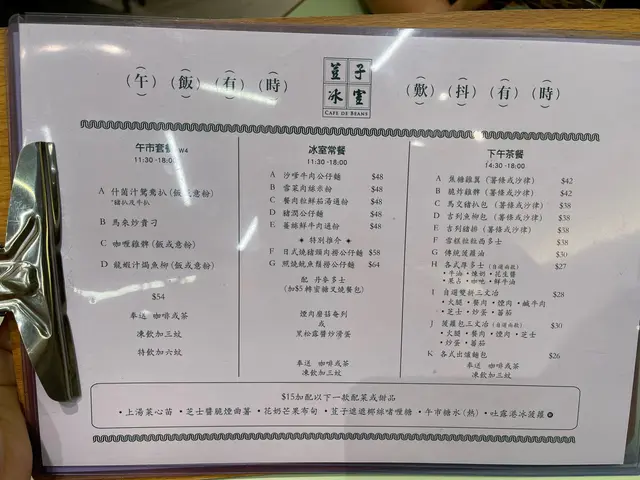 (午) (飯) (有) (時)
荳子
冰室
CAFE DE BEANS
(歎) (抖) (有) (時)
午市套餐 W4
11:30 -18:00
A 什菌汁鴛鴦扒(飯或意粉)
*豬扒及牛扒
B 馬來炒貴刁
C 咖喱雞髀(飯或意粉)
D 龍蝦汁焗魚柳(飯或意粉)
$54
奉送 咖啡或茶
凍飲加三蚊
特飲加六蚊
冰室常餐
11:30 -18:00
A 沙嗲牛肉公仔麵 $48
B 雪菜肉絲米粉 $48
C 餐肉粒鮮茄湯通粉 $48
D 豬潤公仔麵 $48
E 蕃茄鮮牛肉通粉 $48
特別推介
F 日式燒豬頸肉撈公仔麵 $58
G 照燒魷魚鬚撈公仔麵 $64
配 丹麥多士
(加$5轉蜜糖叉燒餐包)
煙肉磨菇奄列
或
黑松露醬炒滑蛋
奉送 咖啡或茶
凍飲加三蚊
下午茶餐
14:30 -18:00
A 蕉糖雞翼 (薯條或沙律) $42
B 脆炸雞髀 (薯條或沙律) $42
C 馬交豬扒包 (薯條或沙律) $38
D 吉列魚柳包 (薯條或沙律) $38
E 吉列豬排 (薯條或沙律) $38
F 雪糕粒粒西多士 $38
G 傳統菠蘿油 $30
H 各式厚多士 (自選兩款) $27
•牛油 •煉奶 •花生醬
•果占 •咖吔 •鮮牛油
I 自選雙拼三文冶 $28
•火腿 •餐肉 •煙肉 •鹹牛肉
•芝士 •炒蛋 •蕃茄
J 菠蘿包三文冶 (自選兩款) $30
•火腿 •餐肉 •煙肉 •芝士
•炒蛋 •蕃茄
K 各式出爐麵包 $26
奉送 咖啡或茶
凍飲加三蚊
$15加配以下一款配菜或甜品
•上湯菜心苗 •芝士醬脆煙曲薯 •花奶芒果布甸 •荳子遮遮椰絲啫喱糖 •午市糖水(熱) •吐露港冰菠蘿